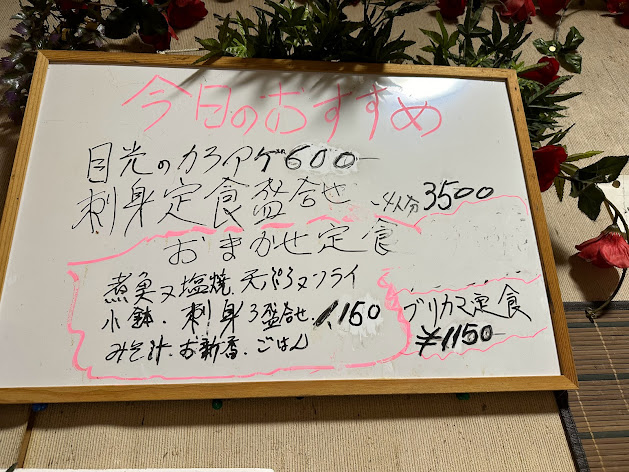 今日のおすすめ
目光のカラアゲ600-
刺身定食盛合せ 4人分 3500
おまかせ定食
煮魚又塩焼、天ぷら又フライ
小鉢、刺身3盛合せ、1,160
みそ汁、お新香、ごはん
ブリカマ定食
¥1150-